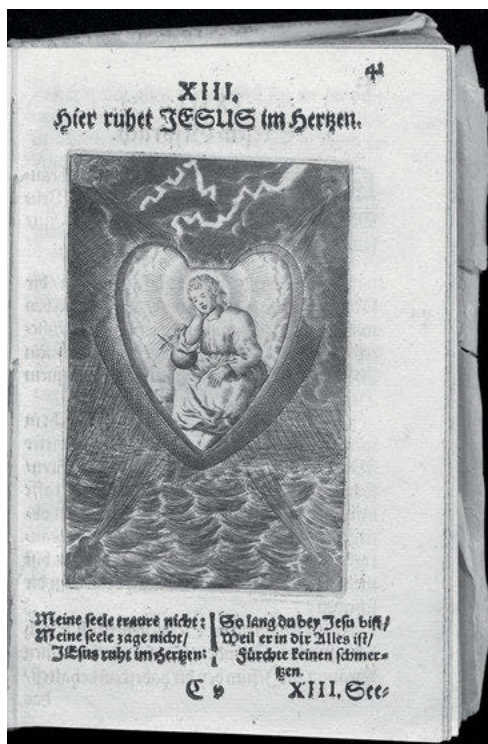 41
XIII.
Hier ruhet JESUS im Hertzen.
Meine seele traure nicht:
Meine seele zage nicht/
JEsus ruht im Hertzen:
So lang du bey Jesu bist/
Weil er in dir Alles ist/
Fürchte keinen schmer=
tzen.
C v
XIII. See=